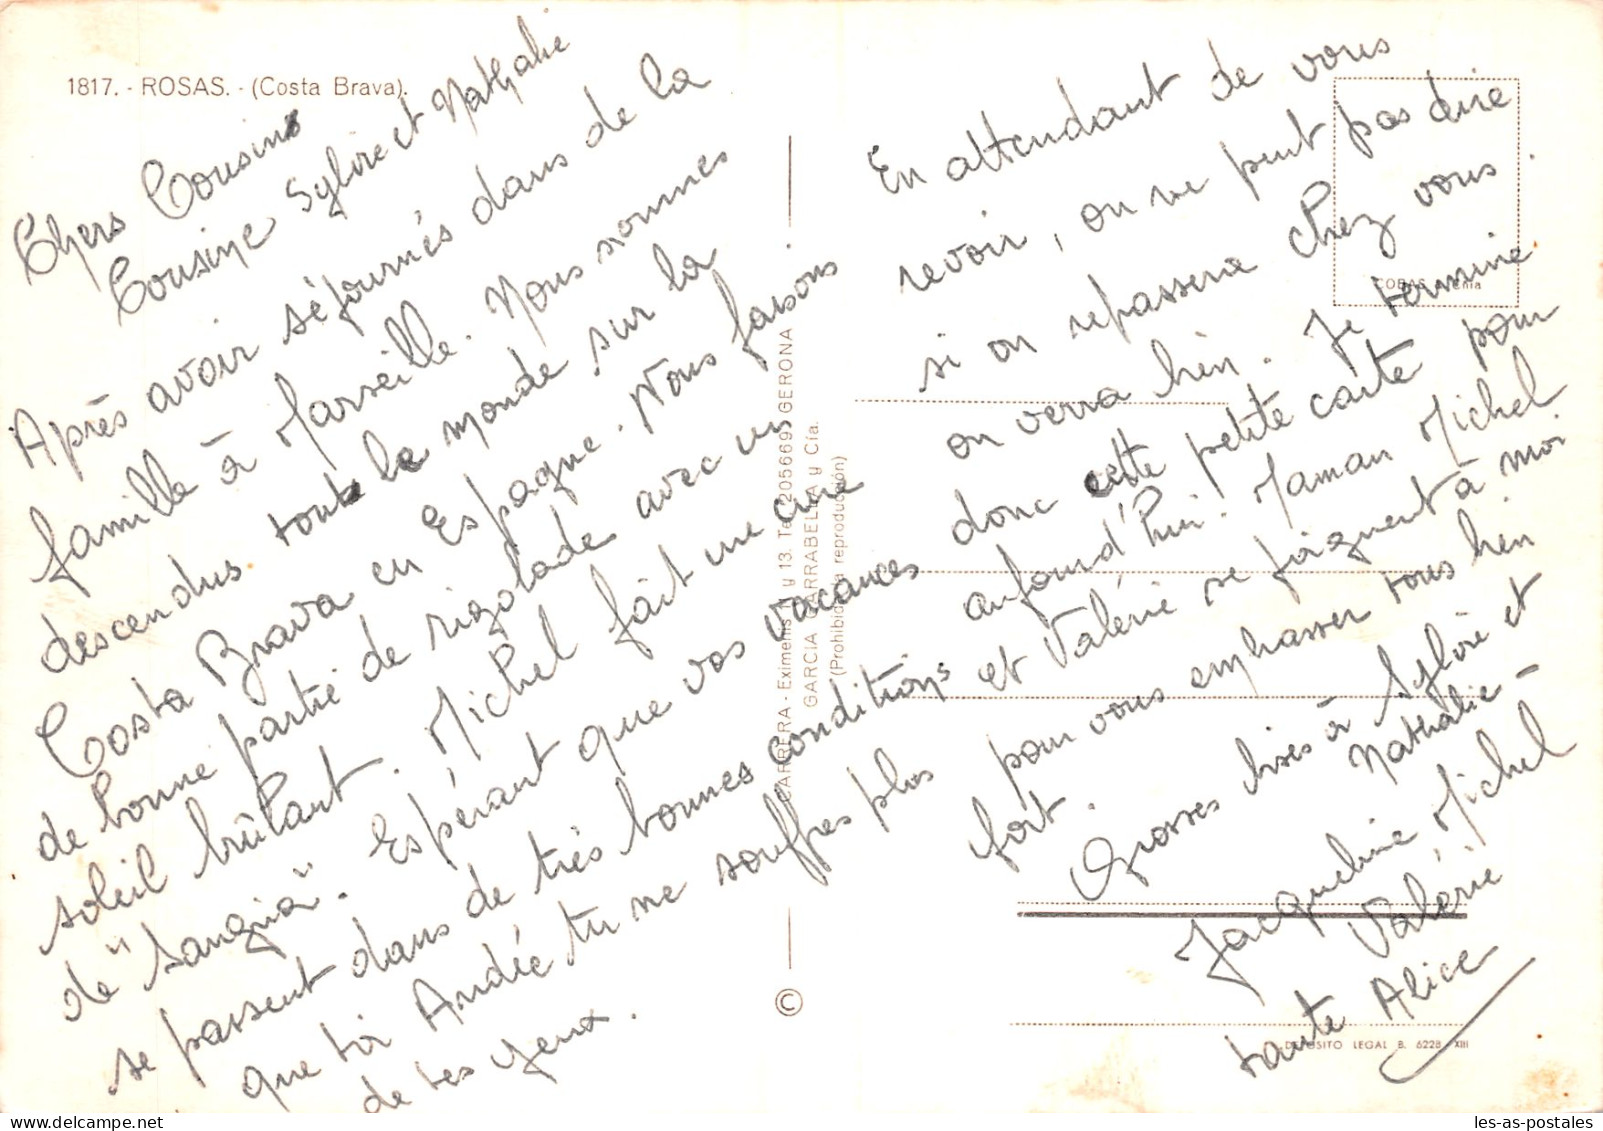 1817. - ROSAS. - (Costa Brava).
Chers Cousins
Cousine Sylvie et Nathalie
Après avoir séjournés dans de la
famille à Marseille. Nous sommes
descendus tout le monde sur la
Costa Brava en Espagne. Nous faisons
de bonne partie de rigolade avec un
soleil brûlant. Michel fait une cure
de "Sangria". Espérant que vos vacances
se passent dans de très bonnes conditions
que toi Andrée tu ne souffres plus
de tes yeux.
En attendant de vous
revoir, on ne peut pas dire
si on repassera chez vous.
on verra bien. Je termine
donc cette petite carte pour
aujourd'hui. Maman Michel
et Valérie se joignent à moi
pour vous embrasser tous bien
fort.
Grosses bises à Sylvie et
Nathalie -
Jacqueline Michel
Valérie
tante Alice
CARRERA - Eximenis 11 y 13. Tel. 205669 GERONA
GARCIA GARRABELLA y Cía.
(Prohibida la reproducción)
©
DEPÓSITO LEGAL B. 6228 XIII
les-as-postales.com